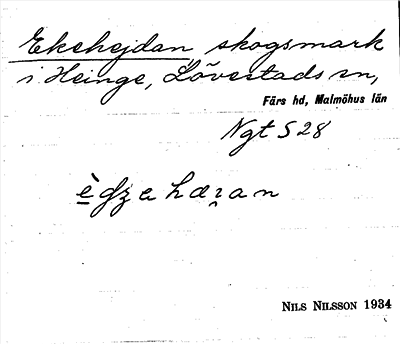 Ekehejdan, skogsmark
i Heinge, Lövestads sn,
Färs hd, Malmöhus län
Ngt S 28
NILS NILSSON 1934